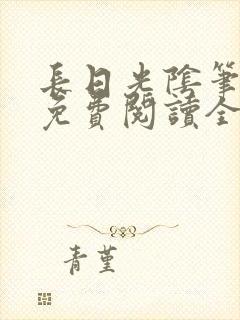 長日光陰筆
免費閱讀全
青堇